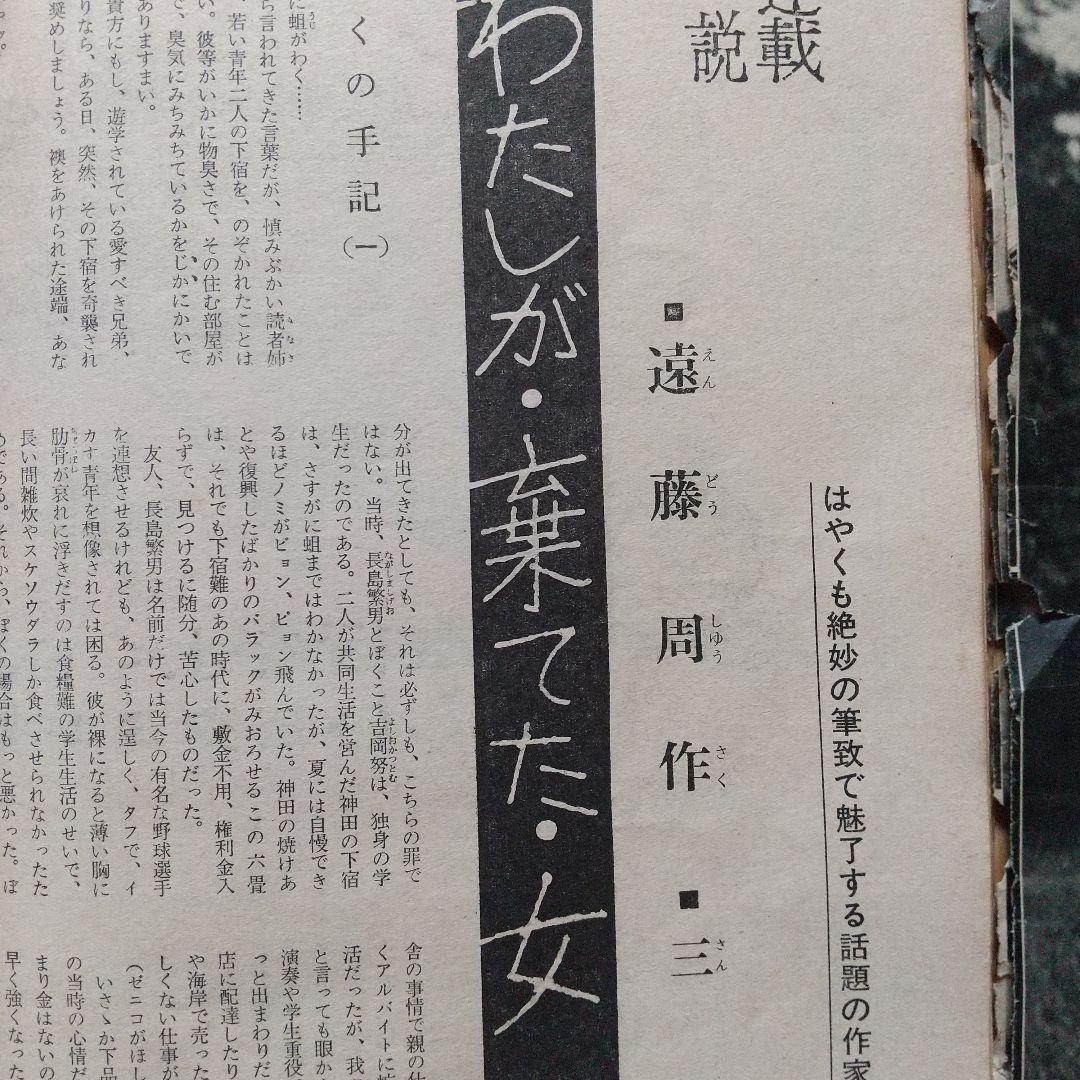 載
説
はやくも絶妙の筆致で魅了する話題の作家
■遠藤周作■三
えんどうしゅうさく さん
わたしが・棄てた・女
くの手記(一)
に蛆がわく……
ら言われてきた言葉だが、慎みぶかい読者姉
、若い青年二人の下宿を、のぞかれたことは
い。彼等がいかに物臭さで、その住む部屋が
で、臭気にみちみちているかをじかにかいで
ありますまい。
貴方にもし、遊学されている愛すべき兄弟、
りなら、ある日、突然、その下宿を奇襲され
奨めしましょう。襖をあけられた途端、あな
分が出てきたとしても、それは必ずしも、こちらの罪で
はない。当時、長島繁男とぼくこと吉岡努は、独身の学
生だったのである。二人が共同生活を営んだ神田の下宿
は、さすがに蛆まではわかなかったが、夏には自慢でき
るほどノミがピョン、ピョン飛んでいた。神田の焼けあ
とや復興したばかりのバラックがみおろせるこの六畳
は、それでも下宿難のあの時代に、敷金不用、権利金入
らずで、見つけるに随分、苦心したものだった。
友人、長島繁男は名前だけでは当今の有名な野球選手
を連想させるけれども、あのように逞しく、タフで、イ
カす青年を想像されては困る。彼が裸になると薄い胸に
肋骨が哀れに浮きだすのは食糧難の学生生活のせいで、
長い間雑炊やスケソウダラしか食べさせられなかったた
めである。それから、ぼくの場合はもっと悪かった。ぼ
舎の事情で親の仕
くアルバイトに
活だったが、我
と言っても眼か
演奏や学生重役
っと出まわりだ
店に配達したり
や海岸で売った
しくない仕事が
(ゼニコがほし
いさゝか下品
の当時の心情だ
まり金はないの
早く強くなった